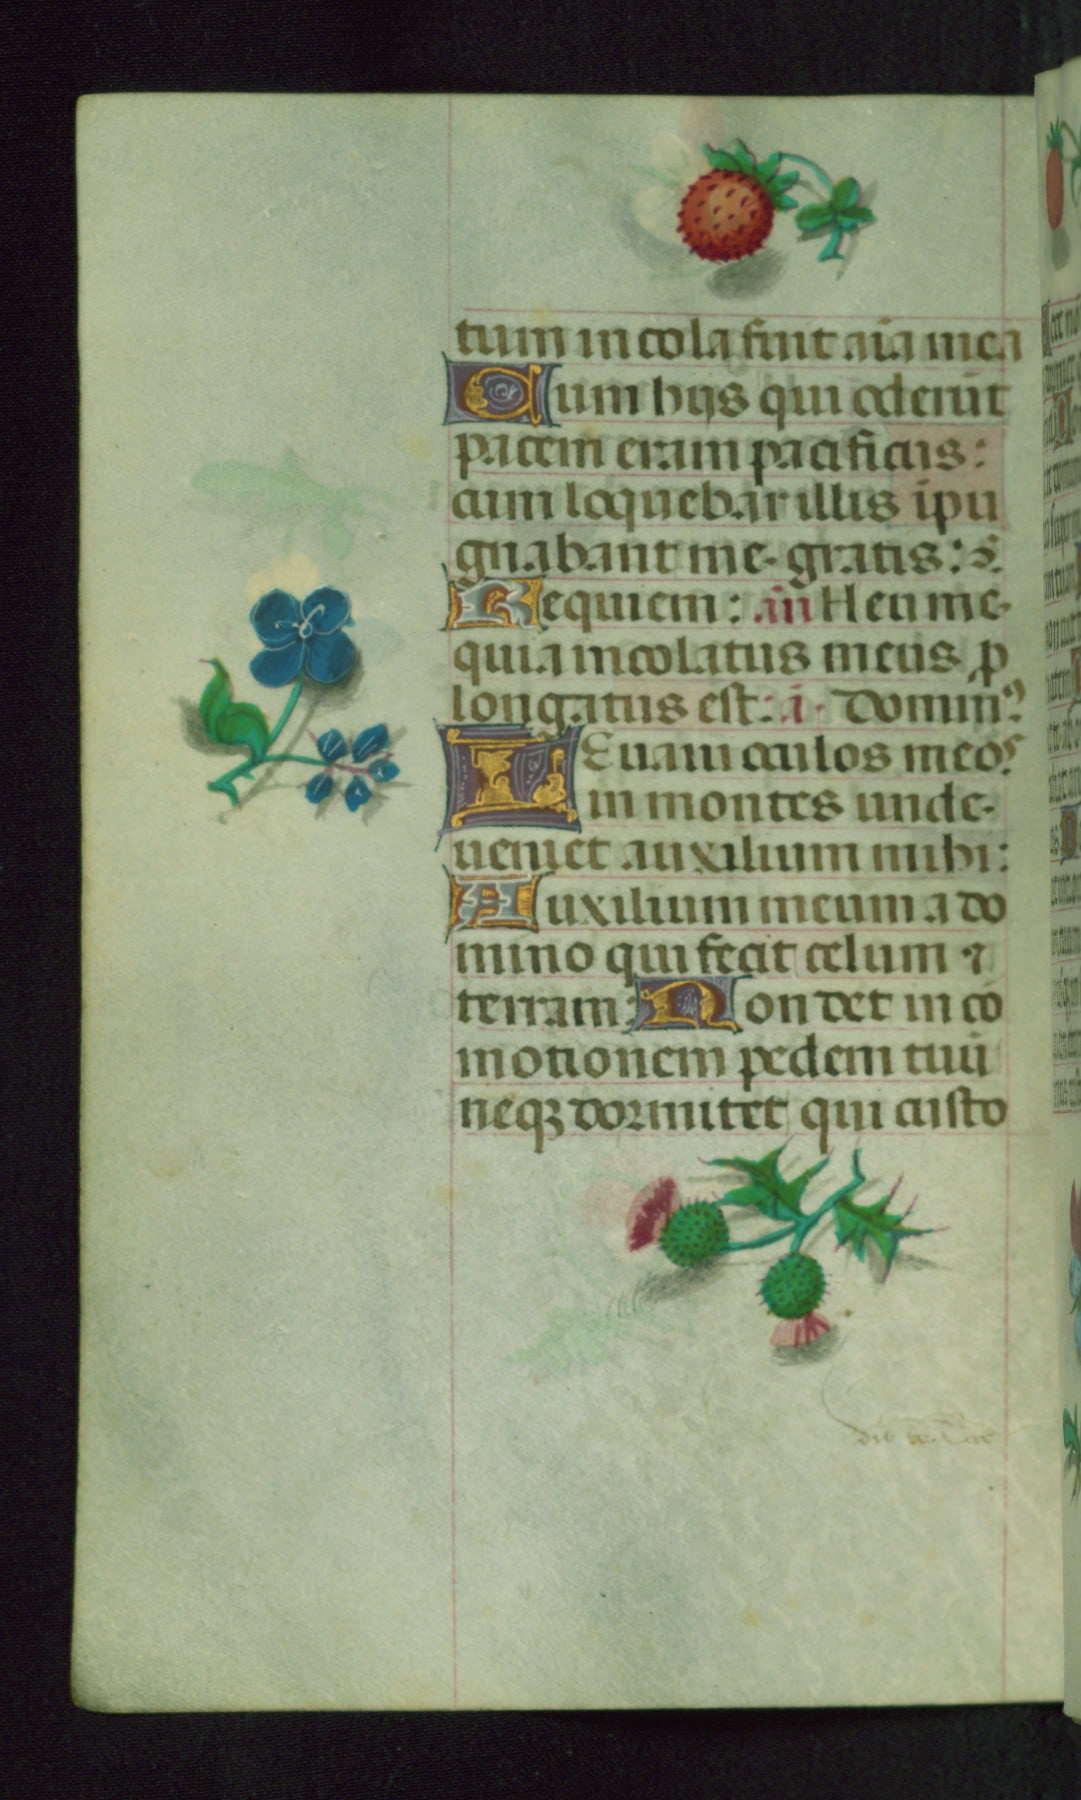 tum incola fuit aīa mea
Cum hijs qui oderūt
pacem eram pacificus:
cum loquebar illis īpu
gnabant me gratis: p̄.
Requiem: an̄ Heu me
quia incolatus meus ꝓ
longatus est: ā. Dominꝰ:
Leuaui oculos meos
in montes unde
ueniet auxilium mihi:
Auxilium meum a do
mino qui fecit celum ⁊
terram: Non det in cō
motionem pedem tuū
neqꝫ dormitet qui custo